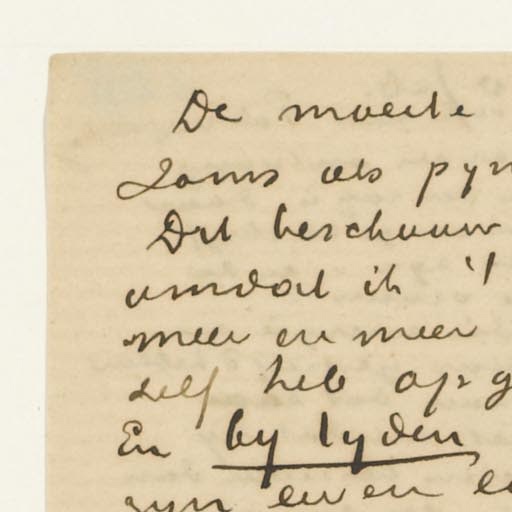 De moeite
Soms als pyn
Dit beschouw
omdat ik 't
meer en meer
zelf heb op g
En by lyden
zyn even